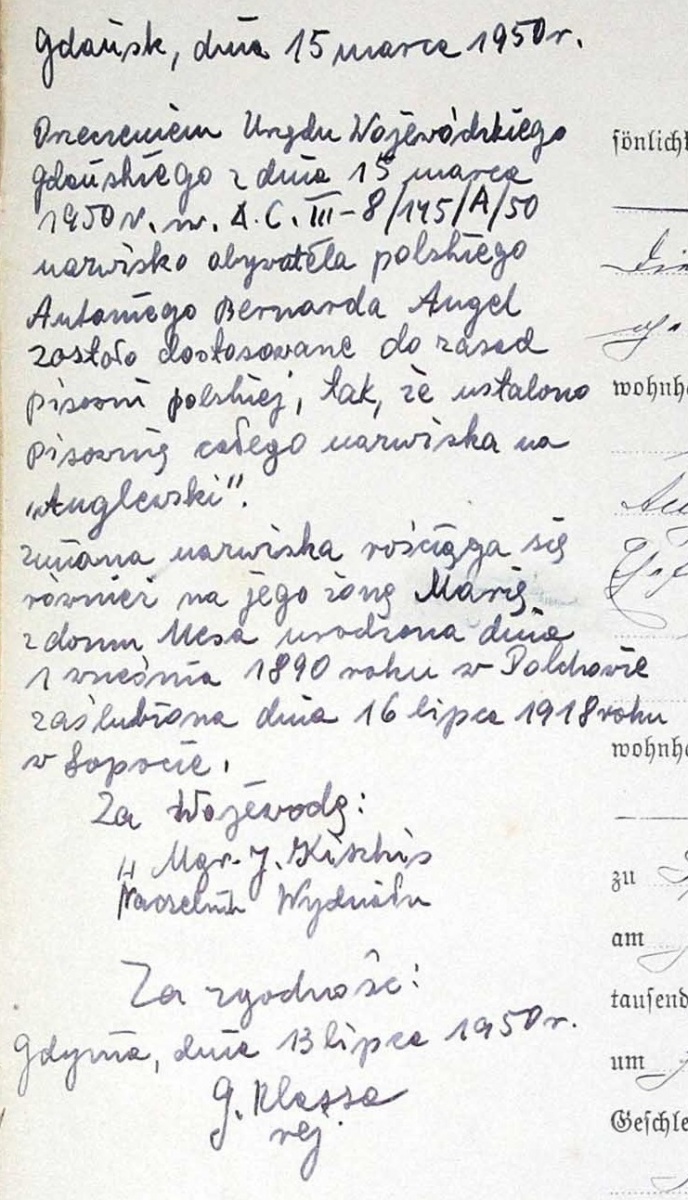 Gdańsk, dnia 15 marca 1950 r.
Orzeczeniem Urzędu Wojewódzkiego
Gdańskiego z dnia 15 marca
1950 r. nr. A.C. III-8/145/A/50
nazwisko obywatela polskiego
Antoniego Bernarda Angel
zostało dostosowane do zasad
pisowni polskiej, tak, że ustalono
pisownię całego nazwiska na
„Anglewski".
Zmiana nazwiska rościąga się
również na jego żonę Marię
z domu Mesa urodzona dnia
1 września 1890 roku w Połchowie
zaślubiona dnia 16 lipca 1918 roku
w Sopocie.
Za Wojewodę:
„ Mgr. J.
Naczelnik Wydziału
Za zgodność:
Gdynia, dnia 13 lipca 1950 r.
G. Klassa
rej.
sönlichk
wohnha
wohnha
zu
am
tausend
um
Geschle